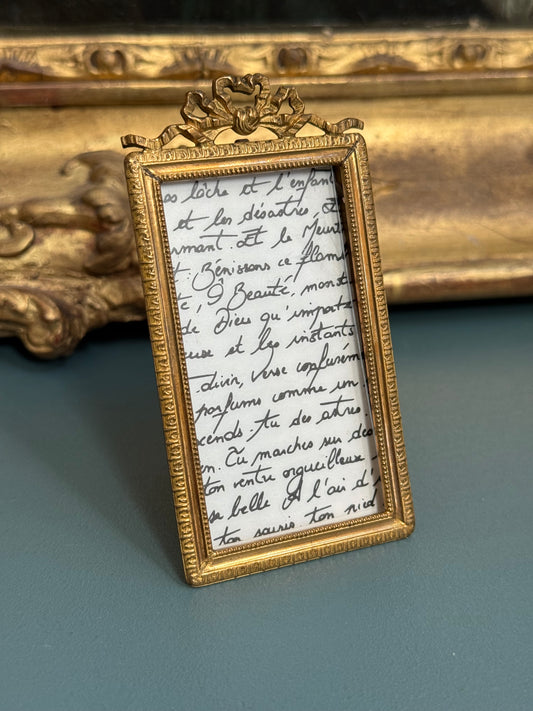 as lâche et l'enfan
et les désastres, Et
rmant. Et le Meurt
t. Bénissons ce flam
té, Ô Beauté, monst
de Dieu qu'importe
euse et les instants
divin, verse confusém
parfums comme un
cends-tu des astres.
en. Tu marches sur des
ton ventre orgueilleux
se belle A l'air d'
ton souris ton pied